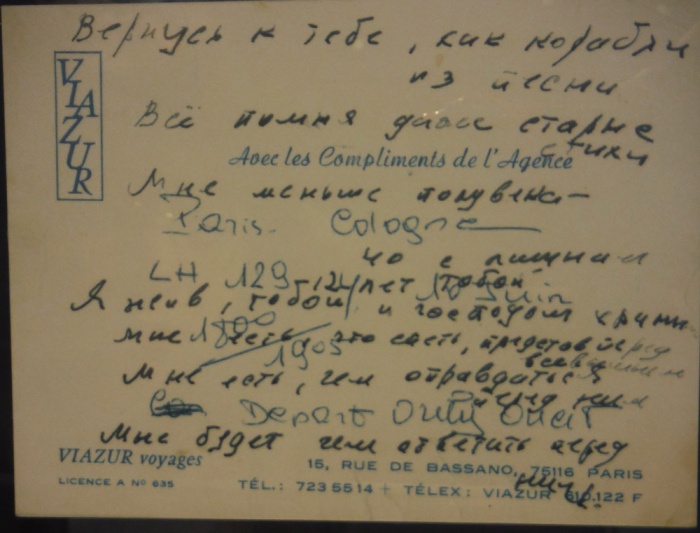 Вернусь к тебе, как корабли
из песни
VIAZUR
Всё помня даже старые
стихи
Avec les Compliments de l'Agence
Мне меньше полувека —
Paris - Cologne
40 с лишним
LH 129 - 12 лет тобой
10 Juin
Я жив, тобой и господом храним
1800
Мне есть, что спеть, представ перед
всевышним
1905
Мне есть, чем оправдаться
перед ним
Départ Orly Ouest
Мне будет чем ответить перед
ним.
VIAZUR voyages
15, RUE DE BASSANO, 75116 PARIS
LICENCE A N° 635
TÉL.: 723 55 14 + TÉLEX: VIAZUR 610.122 F